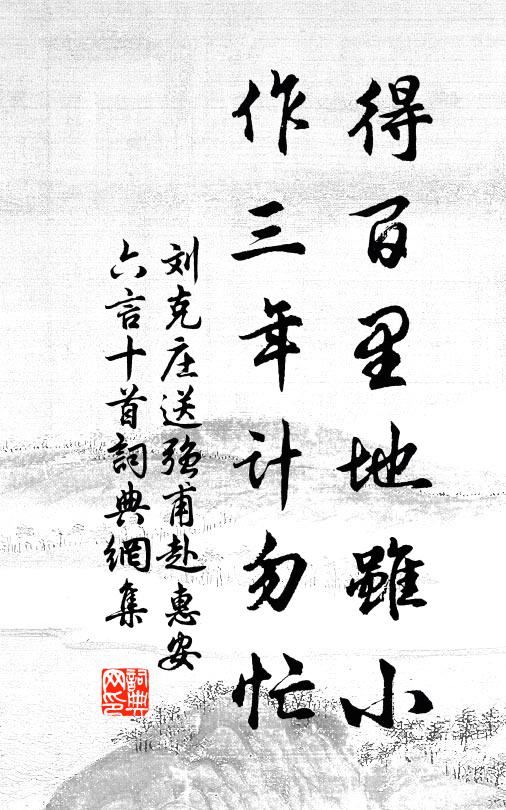 得百里地雖小
作三年计勿忙
刘克庄送強甫赴惠安
六言十首詞典網集
詞典
网印